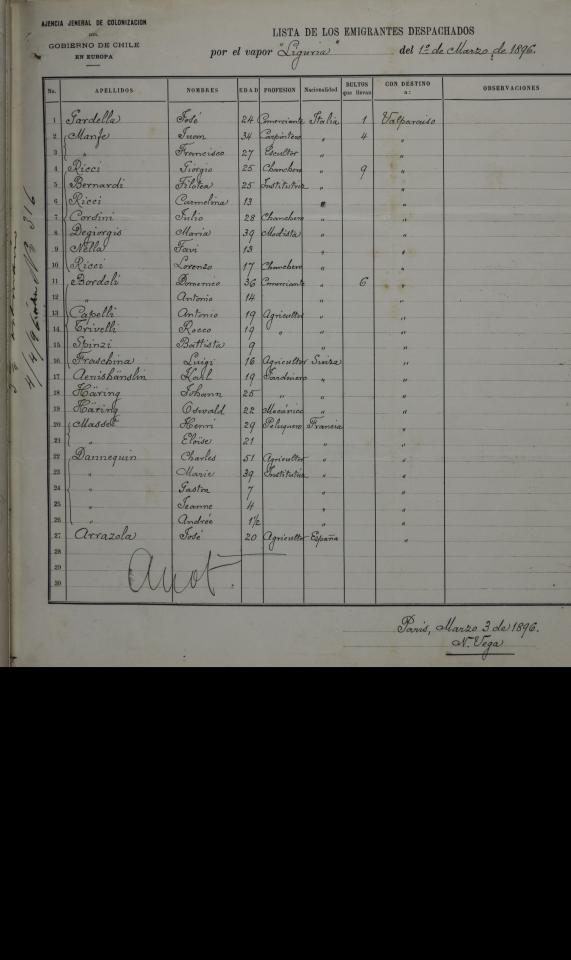 AJENCIA JENERAL DE COLONIZACION
DEL
GOBIERNO DE CHILE
EN EUROPA
LISTA DE LOS EMIGRANTES DESPACHADOS
por el vapor "Liguria" del 1º de Marzo de 1896.
No. APELLIDOS NOMBRES EDAD PROFESION Nacionalidad BULTOS que llevan CON DESTINO a: OBSERVACIONES
1 Gardella José 24 Comerciante Italia 1 Valparaiso
2 Manfe Juan 34 Carpintero " 4 "
3 " Francisco 27 Escultor " "
4 Ricci Giorgio 25 Chanchero " 9 "
5 Bernardi Filotea 25 Institutriz " "
6 Ricci Carmelina 13 " "
7 Cordini Julio 28 Chanchero " "
8 Degiorgis Maria 39 Modista " "
9 Nella Favi 13 " "
10 Ricci Lorenzo 17 Chanchero " "
11 Bordoli Domenico 36 Comerciante " 6 "
12 " Antonio 14 " "
13 Capelli Antonio 19 Agricultor " "
14 Trivelli Rocco 19 " " "
15 Spinzi Battista 9 " "
16 Fraschina Luigi 16 Agricultor Suiza "
17 Aenishänslin Karl 19 Jardinero " "
18 Häring Johann 25 " " "
19 Häring Oswald 22 Mecánico " "
20 Massot Henri 29 Peluquero Francia "
21 " Eloise 21 " "
22 Dannequin Charles 51 Agricultor " "
23 " Marie 39 Institutriz " "
24 " Gaston 7 " "
25 " Jeanne 4 " "
26 " Andrée 1½ " "
27 Arrazola José 20 Agricultor España "
28
29
30
Paris, Marzo 3 de 1896.
N. Vega